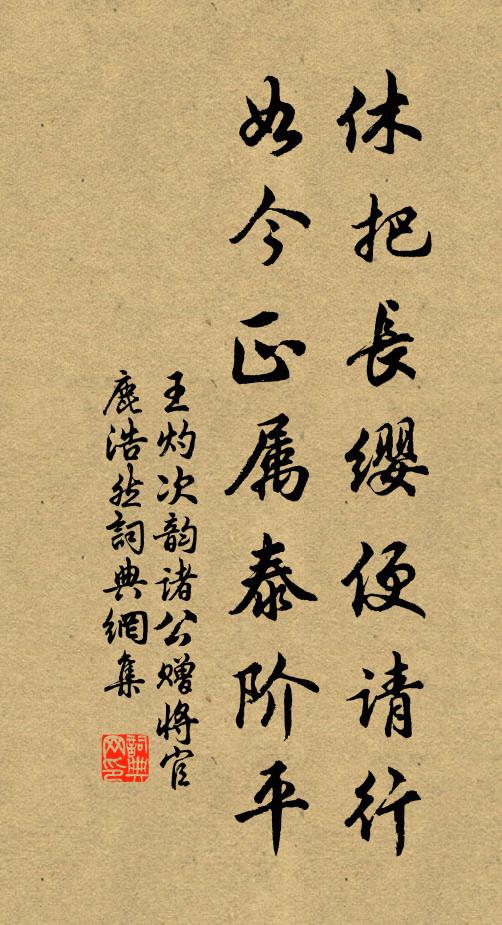 休把長缨便请行
如今正属泰阶平
王灼次韵诸公赠将官
鹿浩然詞典網集
詞典网印